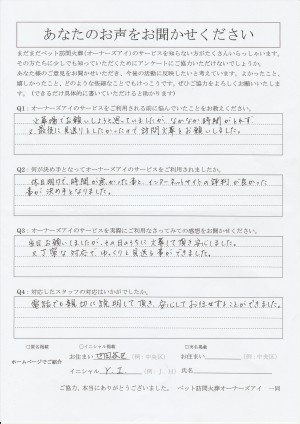 あなたのお声をお聞かせください
まだまだペット訪問火葬(オーナーズアイ)のサービスを知らない方がたくさんいらっしゃいます。
その方たちに少しでも知っていただくためにアンケートにご協力いただけないでしょうか。
あなた様のご意見をお聞かせいただき、今後の活動に反映したいと考えています。よかったこと、
嬉しかったこと、どのような些細なことでもけっこうです。ぜひご協力をよろしくお願いいたしま
す。(できるだけ具体的に書いていただけると助かります)
Q1:オーナーズアイのサービスをご利用される前に悩んでいたことをお教えください。
火葬場でお願いしようと思っていましたが、なかなか時間がとれず、
最後に見送りとしたかったので訪問火葬をお願いしました。
Q2:何が決め手となってオーナーズアイのサービスをご利用されましたか。
休日明けで、時間が無かった事と、インターネットサイトの評判が良かった
事が決め手となりました。
Q3:オーナーズアイのサービスを実際にご利用なさってみての感想をお聞かせください。
当日お願いしましたが、その日のうちに火葬して頂き安心しました。
丁寧な対応で、ゆっくりと見送る事ができました。
Q4:対応したスタッフの対応はいかがでしたか。
電話でも親切に説明して頂き、安心してお任せすることができました。
□匿名掲載 □イニシャル掲載 □実名掲載
ホームページでご紹介
お住まい 世田谷区 (例:中央区) お住まい (例:中央区)
イニシャル Y.I. (例:J.H) 氏名
ご協力、本当にありがとうございました。 ペット訪問火葬オーナーズアイ 一同